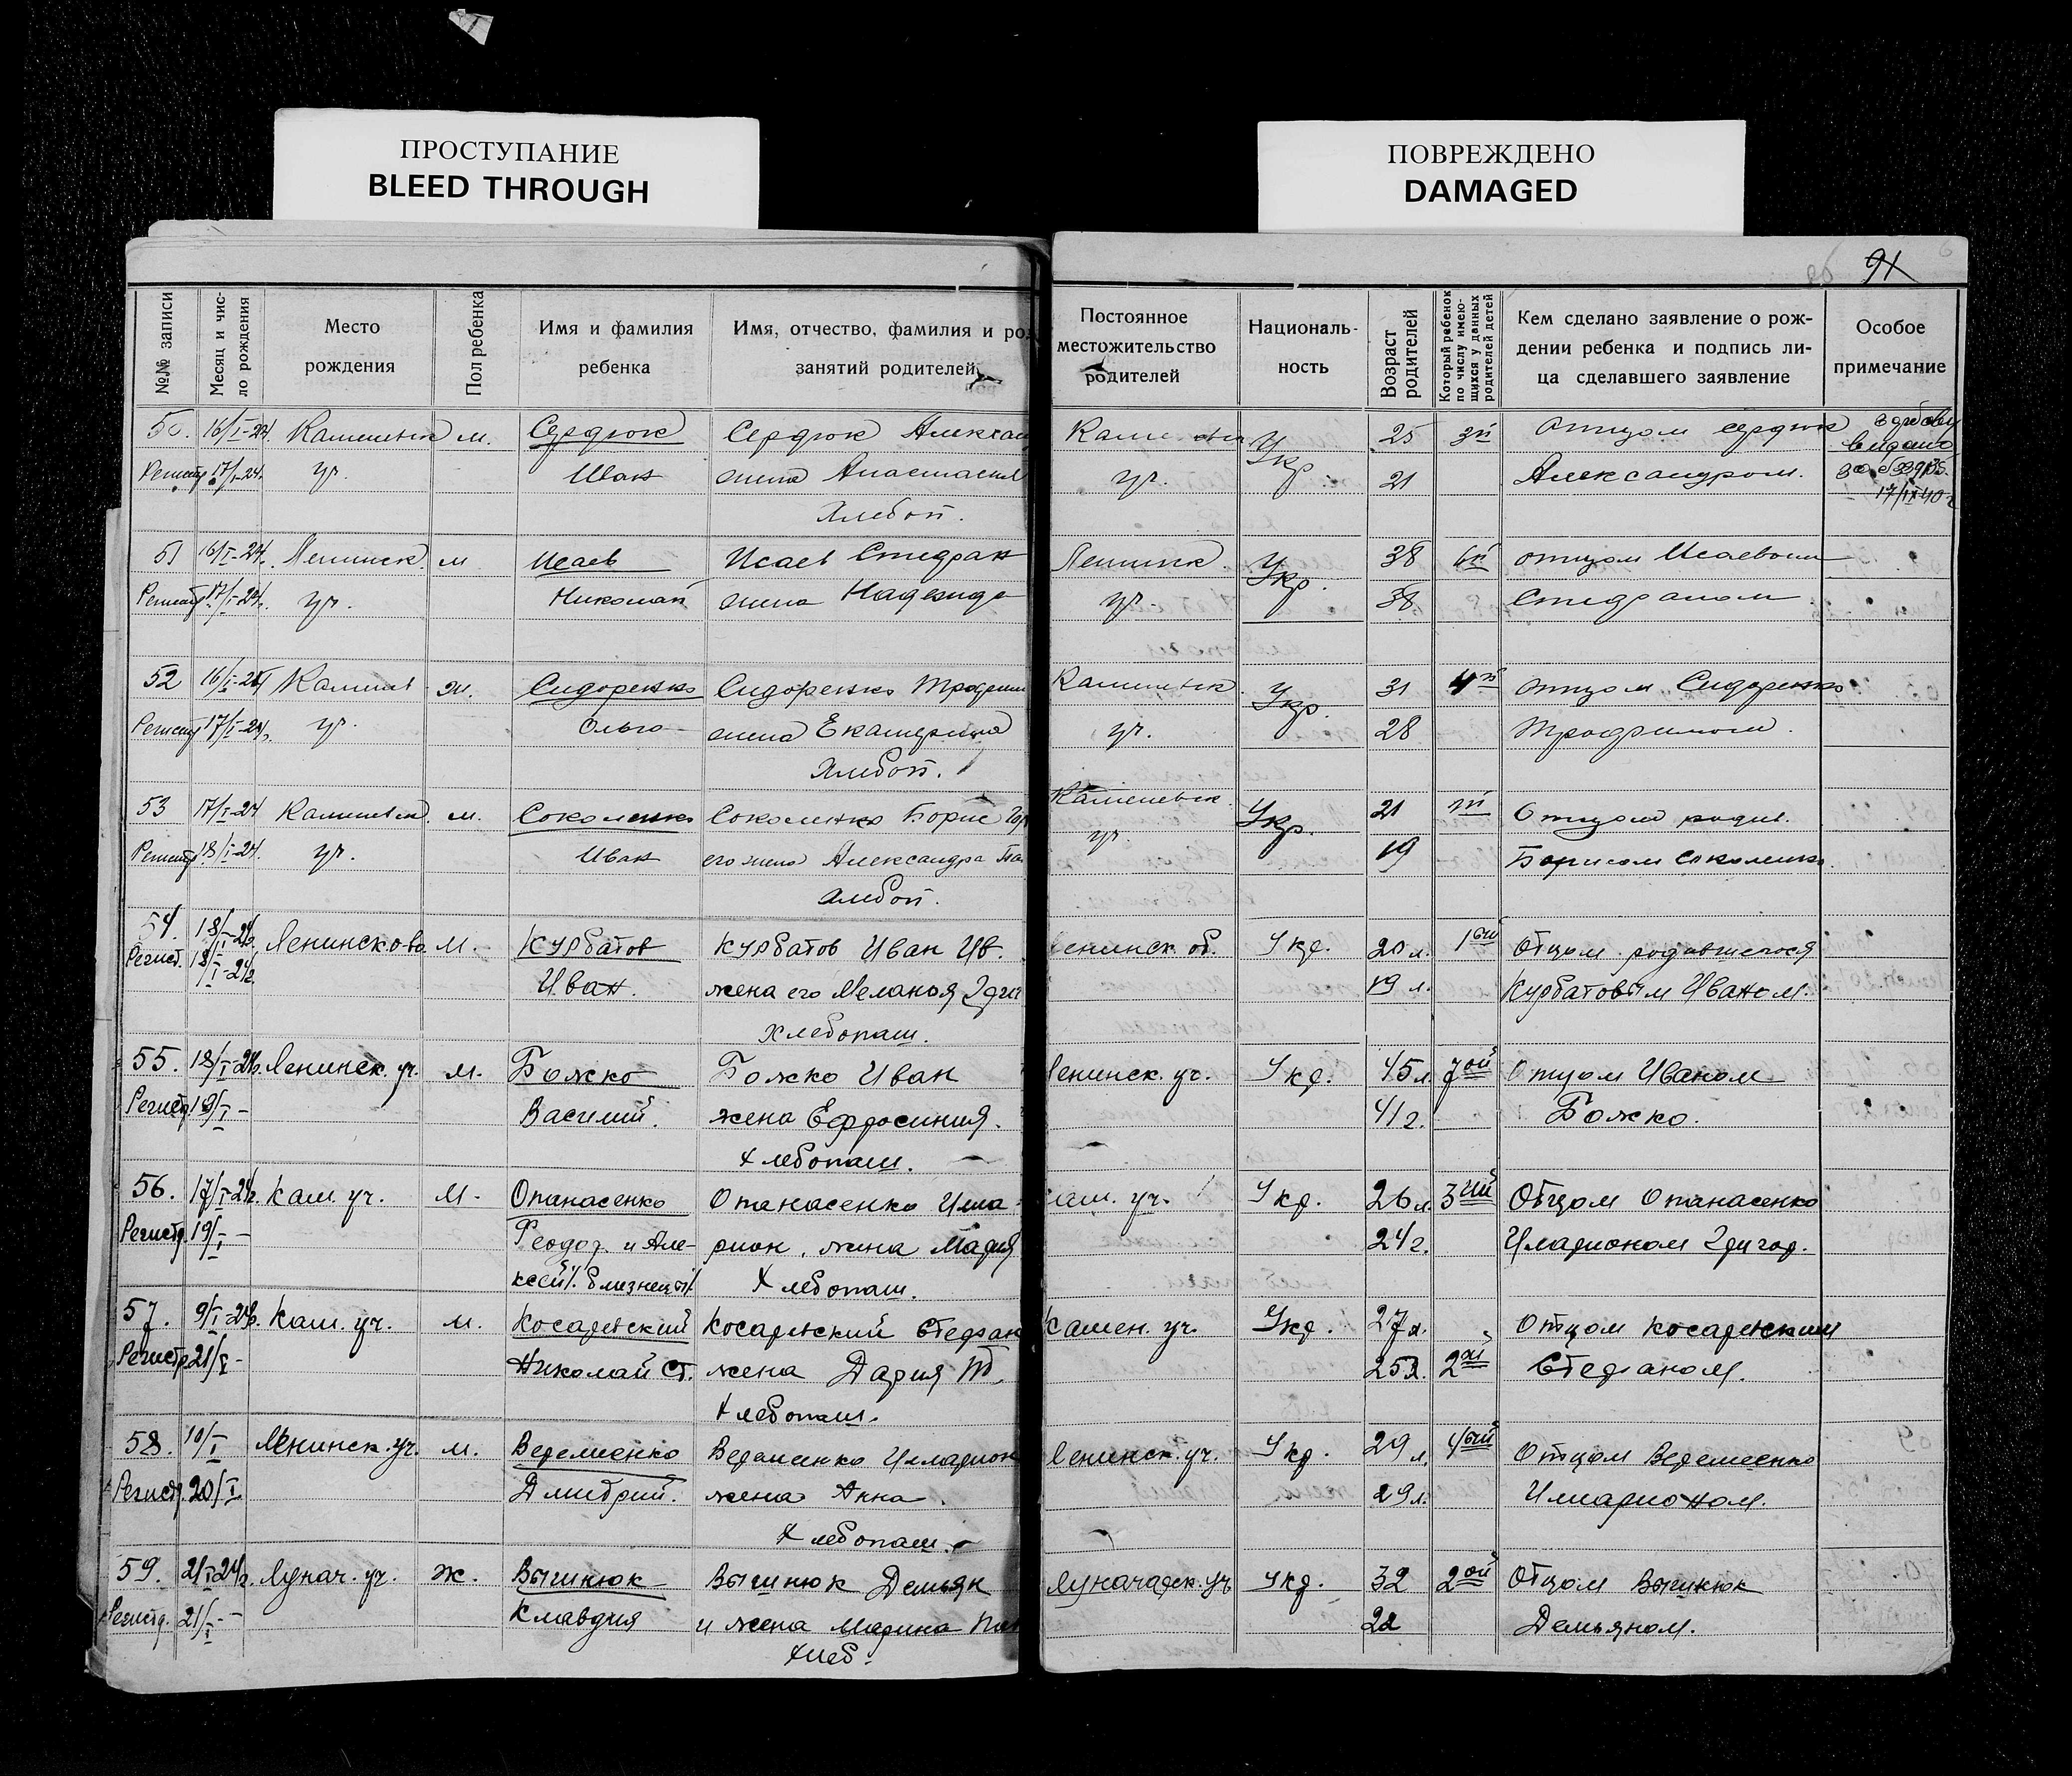 ПРОСТУПАНИЕ
BLEED THROUGH
ПОВРЕЖДЕНО
DAMAGED
91
№№ записи
Месяц и чис-
ло рождения
Место
рождения
Пол ребенка
Имя и фамилия
ребенка
Имя, отчество, фамилия и ро
занятий родителей
Постоянное
местожительство
родителей
Националь-
ность
Возраст
родителей
Который ребенок
по числу имею-
щихся у данных
родителей детей
Кем сделано заявление о рож-
дении ребенка и подпись ли-
ца сделавшего заявление
Особое
примечание
50. 16/I-24. м. Сердюк Сердюк Алексан Укр. 25 3й Отцом Сердюк
17/I-24. уч. Иван жена Анастасия уч. 21 Александром.
Хлебоп. 17/IX 40 г
51 16/I-24. Ленинск. м Исаев Исаев Стефан Ленинск. Укр. 38 отцом Исаевым
17/I-24. уч. Николай жена Надежда уч. 38 Стефаном
52 16/I-24 ж. Сидоренко Сидоренко Трофим Укр. 31 4й отцом Сидоренко
17/I-24. уч Ольга жена Екатерина уч. 28 Трофимом.
Хлебоп.
53 17/I-24 м. Соколенко Соколенко Борис Укр. 21 Отцом родив.
18/I-24. уч. Иван его жена Александра уч. 19 Борисом Соколенко.
Хлебоп.
54. 18/I-24г. м. Курбатов Курбатов Иван Ив. енинск. об. Укр. 20 л. 1ый Отцом родившегося
Регист. 18/I-24г. Иван. жена его Мелания 19 л. Курбатовым Иваном.
Хлебопаш.
55. 18/I-24г. Ленинск. уч. м. Божко Божко Иван Ленинск. уч. Укр. 45л. 7ой Отцом Иваном
Регист. 19/I- Василий. жена Ефросиния. 41г. Божко.
Хлебопаш.
56. 17/I-24г. Кам. уч. м- Опанасенко Опанасенко Илла- кам. уч. Укр. 26л. 3ий Отцом Опанасенко
Регистр. 19/I- Феодор. и Але- рион, жена Мария 24г. Иларионом
ксей /близнецы/ Хлебопаш.
57. 9/I-24г. Кам. уч. м. Косаревский Косаревский Стефан Камен. уч. Укр. 27л. Отцом Косаревским
Регистр. 21/I- Николай Ст. жена Дария 25л. 2ой Стефаном.
Хлебопаш.
58. 10/I Ленинск. уч. м. Веремиенко Веремиенко Илларион Ленинск. уч. Укр. 29 л. 4ый Отцом Веремеенко
Регистр. 20/I Дмитрий. жена Анна. 29л. Иларионом.
Хлебопаш.
59. 21/I 24г. Лунач. уч. ж. Выгинюк Выгинюк Демьян Луначарск. уч Укр. 32 2ой Отцом Выгинюк
Регистр. 21/I- Клавдия и жена Марина 22 Демьяном.
Хлеб.